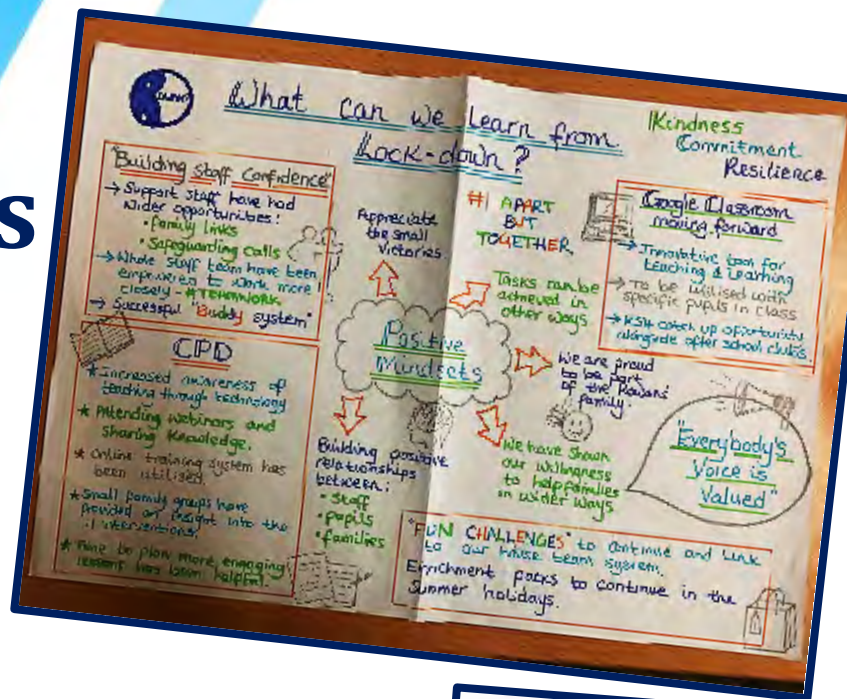 s
What can we learn from
Lock-down?
Kindness
Commitment
Resilience
"Building Staff Confidence"
→ Support staff have had
wider opportunities:
• family links
• Safeguarding calls
→ Whole staff team have been
empowered to work more
closely - #TEAMWORK
→ Successful "Buddy system"
CPD
* Increased awareness of
teaching through technology
* Attending webinars and
sharing knowledge.
* Online training system has
been utilised.
* Small family groups have
provided an insight into the
interventions.
* Time to plan more engaging
lessons has been helpful.
Appreciate
the small
victories.
#1 APART
BUT
TOGETHER
Tasks can be
achieved in
other ways
Positive
Mindsets
We are proud
to be part
of the Rowans'
family.
We have shown
our willingness
to help families
in wider ways
Building positive
relationships
between:
• Staff
• pupils
• families
Google Classroom
moving forward
→ Innovative tool for
teaching & learning
→ To be utilised with
specific pupils in class
→ KS4 catch up opportunity
alongside after school clubs.
"Everybody's
Voice is
Valued"
"FUN CHALLENGES" to continue and link
to our house team system.
Enrichment packs to continue in the
Summer holidays.